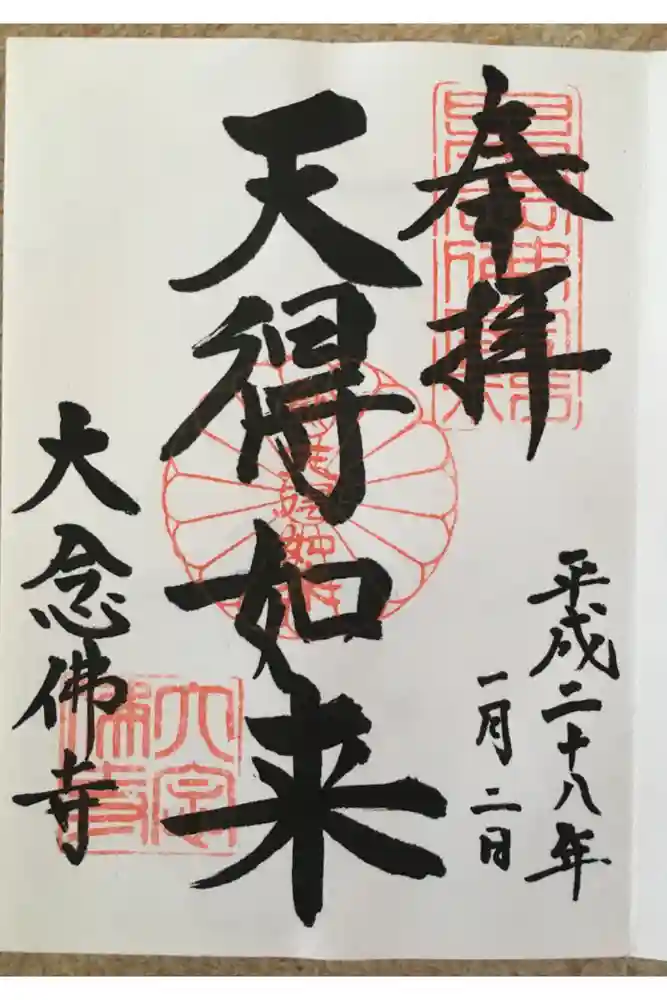 奉拝
平成二十八年
一月二日
天得如来
大念佛寺
大念佛寺